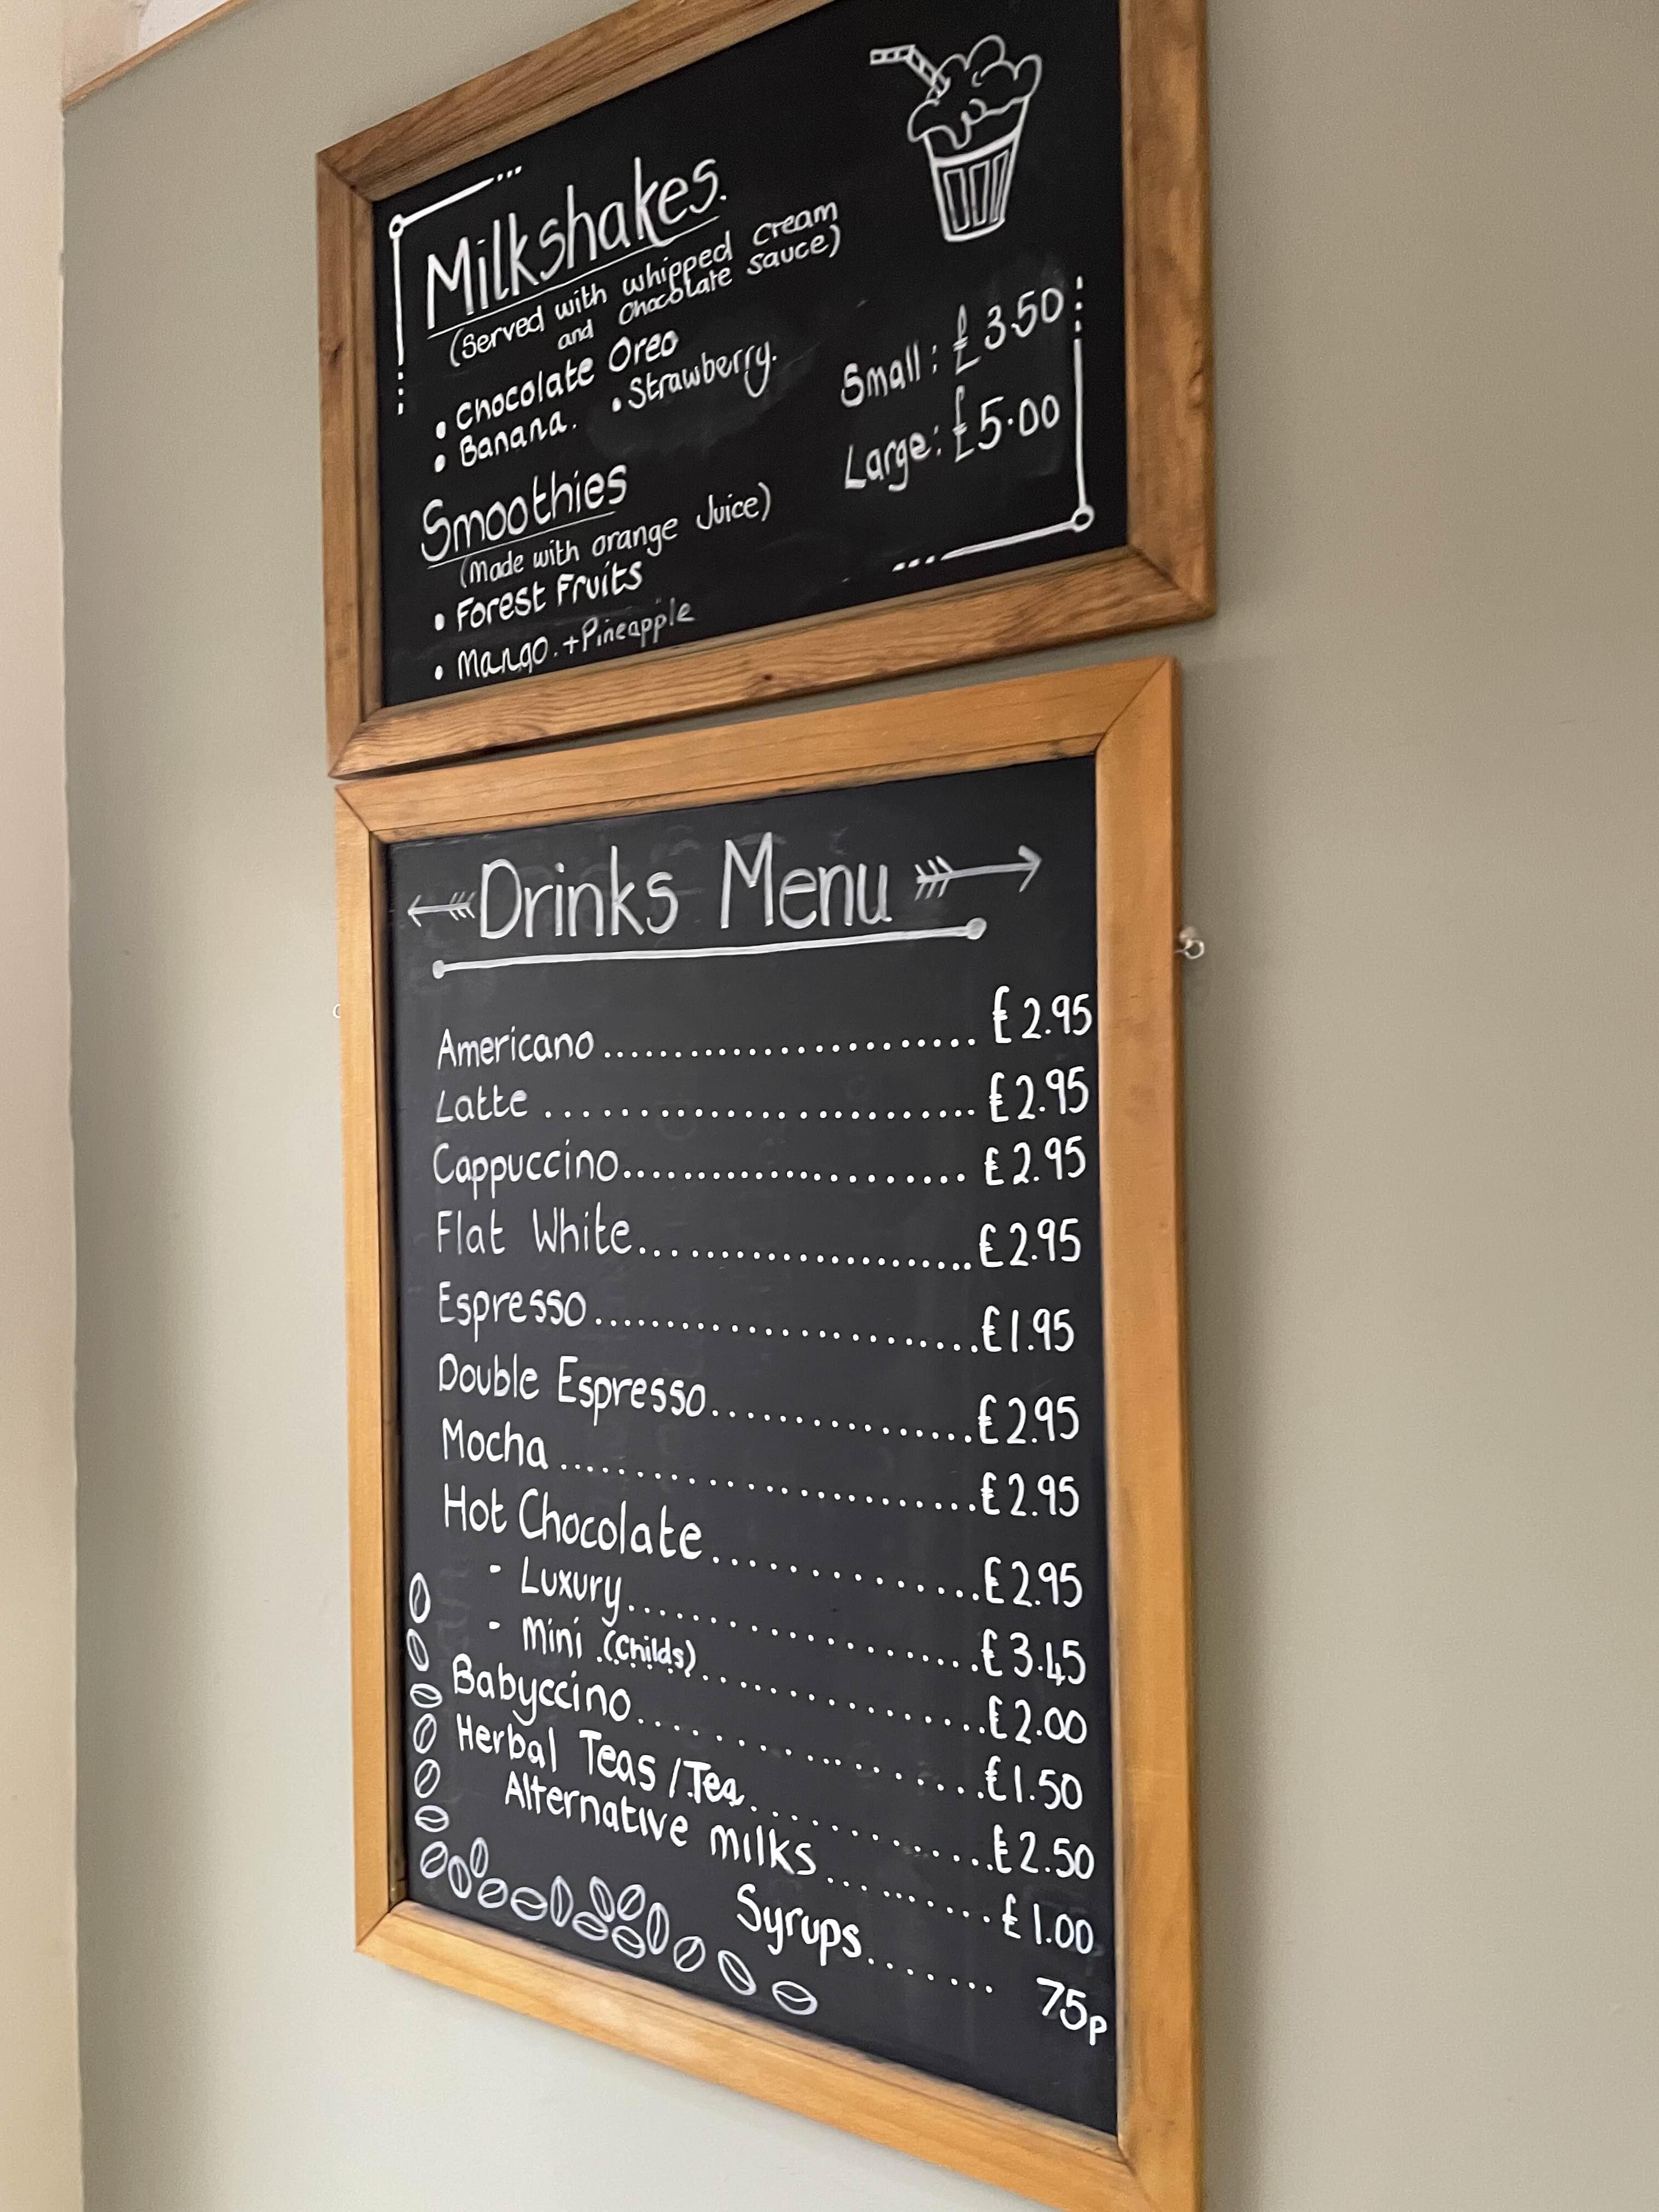 Milkshakes.
(Served with whipped cream
and Chocolate sauce)
• Chocolate Oreo
• Banana. • Strawberry.
Small: £3.50
Large: £5.00
Smoothies
(Made with orange Juice)
• Forest Fruits
• Mango. + Pineapple
Drinks Menu
Americano........................ £2.95
Latte ........................ £2.95
Cappuccino........................ £2.95
Flat White........................£2.95
Espresso........................£1.95
Double Espresso..................£2.95
Mocha ........................£2.95
Hot Chocolate..................£2.95
- Luxury........................£3.45
- Mini (Childs)..................£2.00
Babyccino........................£1.50
Herbal Teas / Tea..................£2.50
Alternative milks............£1.00
Syrups........ 75p